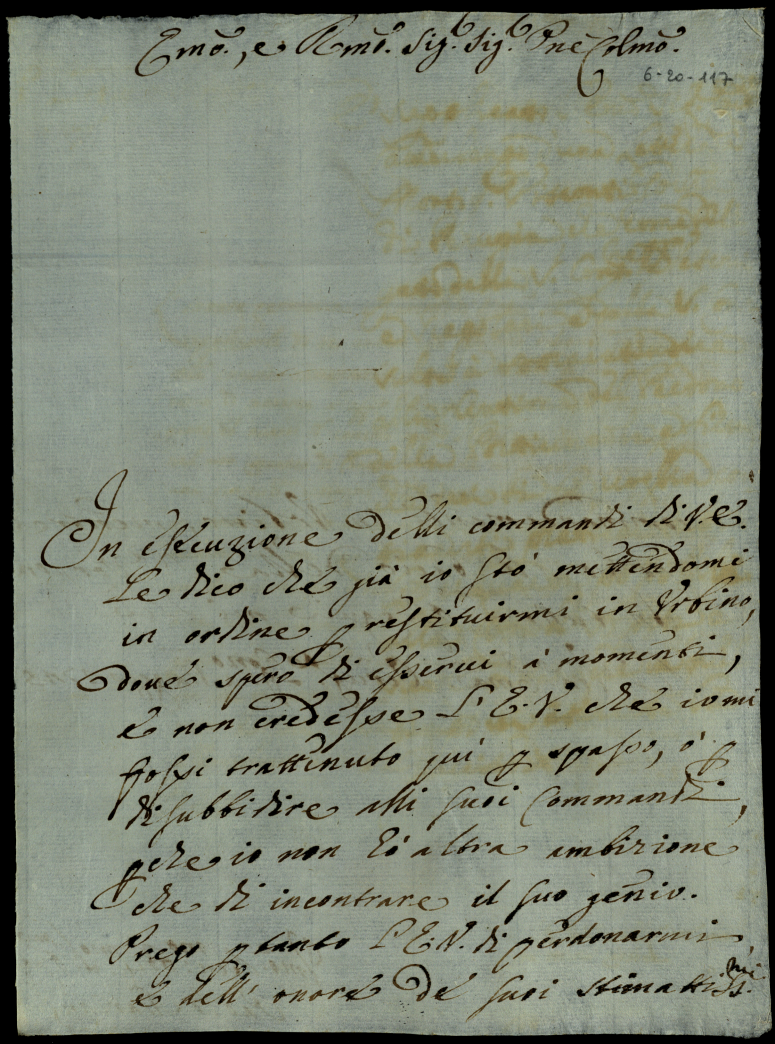 Emō., e Rmō. Sig.r Sig.r Pnē Colmō.
6-20-117
In essecuzione delli commandi di V.E.
Le dico che già io stò mettendomi
in ordine p restituirmi in Urbino,
dove spero di esservi à momenti,
e non credesse l'E.V. che io mi
fossi trattenuto quì p spasso, ò p
disubbidire alli suoi commandi,
pche io non hò altra ambizione
che di incontrare il suo genio.
Prego ptanto l'E.V. di perdonarmi,
e dell' onore de' suoi stimattiss.mi